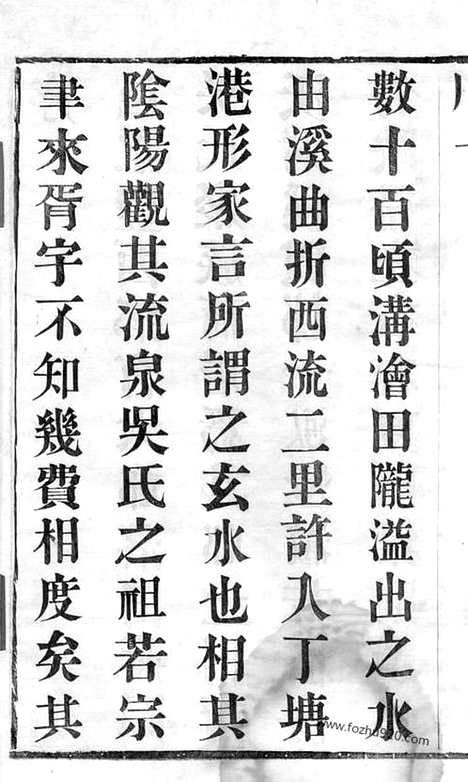 數十百頃溝澮田隴溢出之水
由溪曲折西流二里許入丁塘
港形家言所謂之玄水也相其
陰陽觀其流泉吳氏之祖若宗
聿來胥宇不知幾費相度矣其
www.fozhu920.com